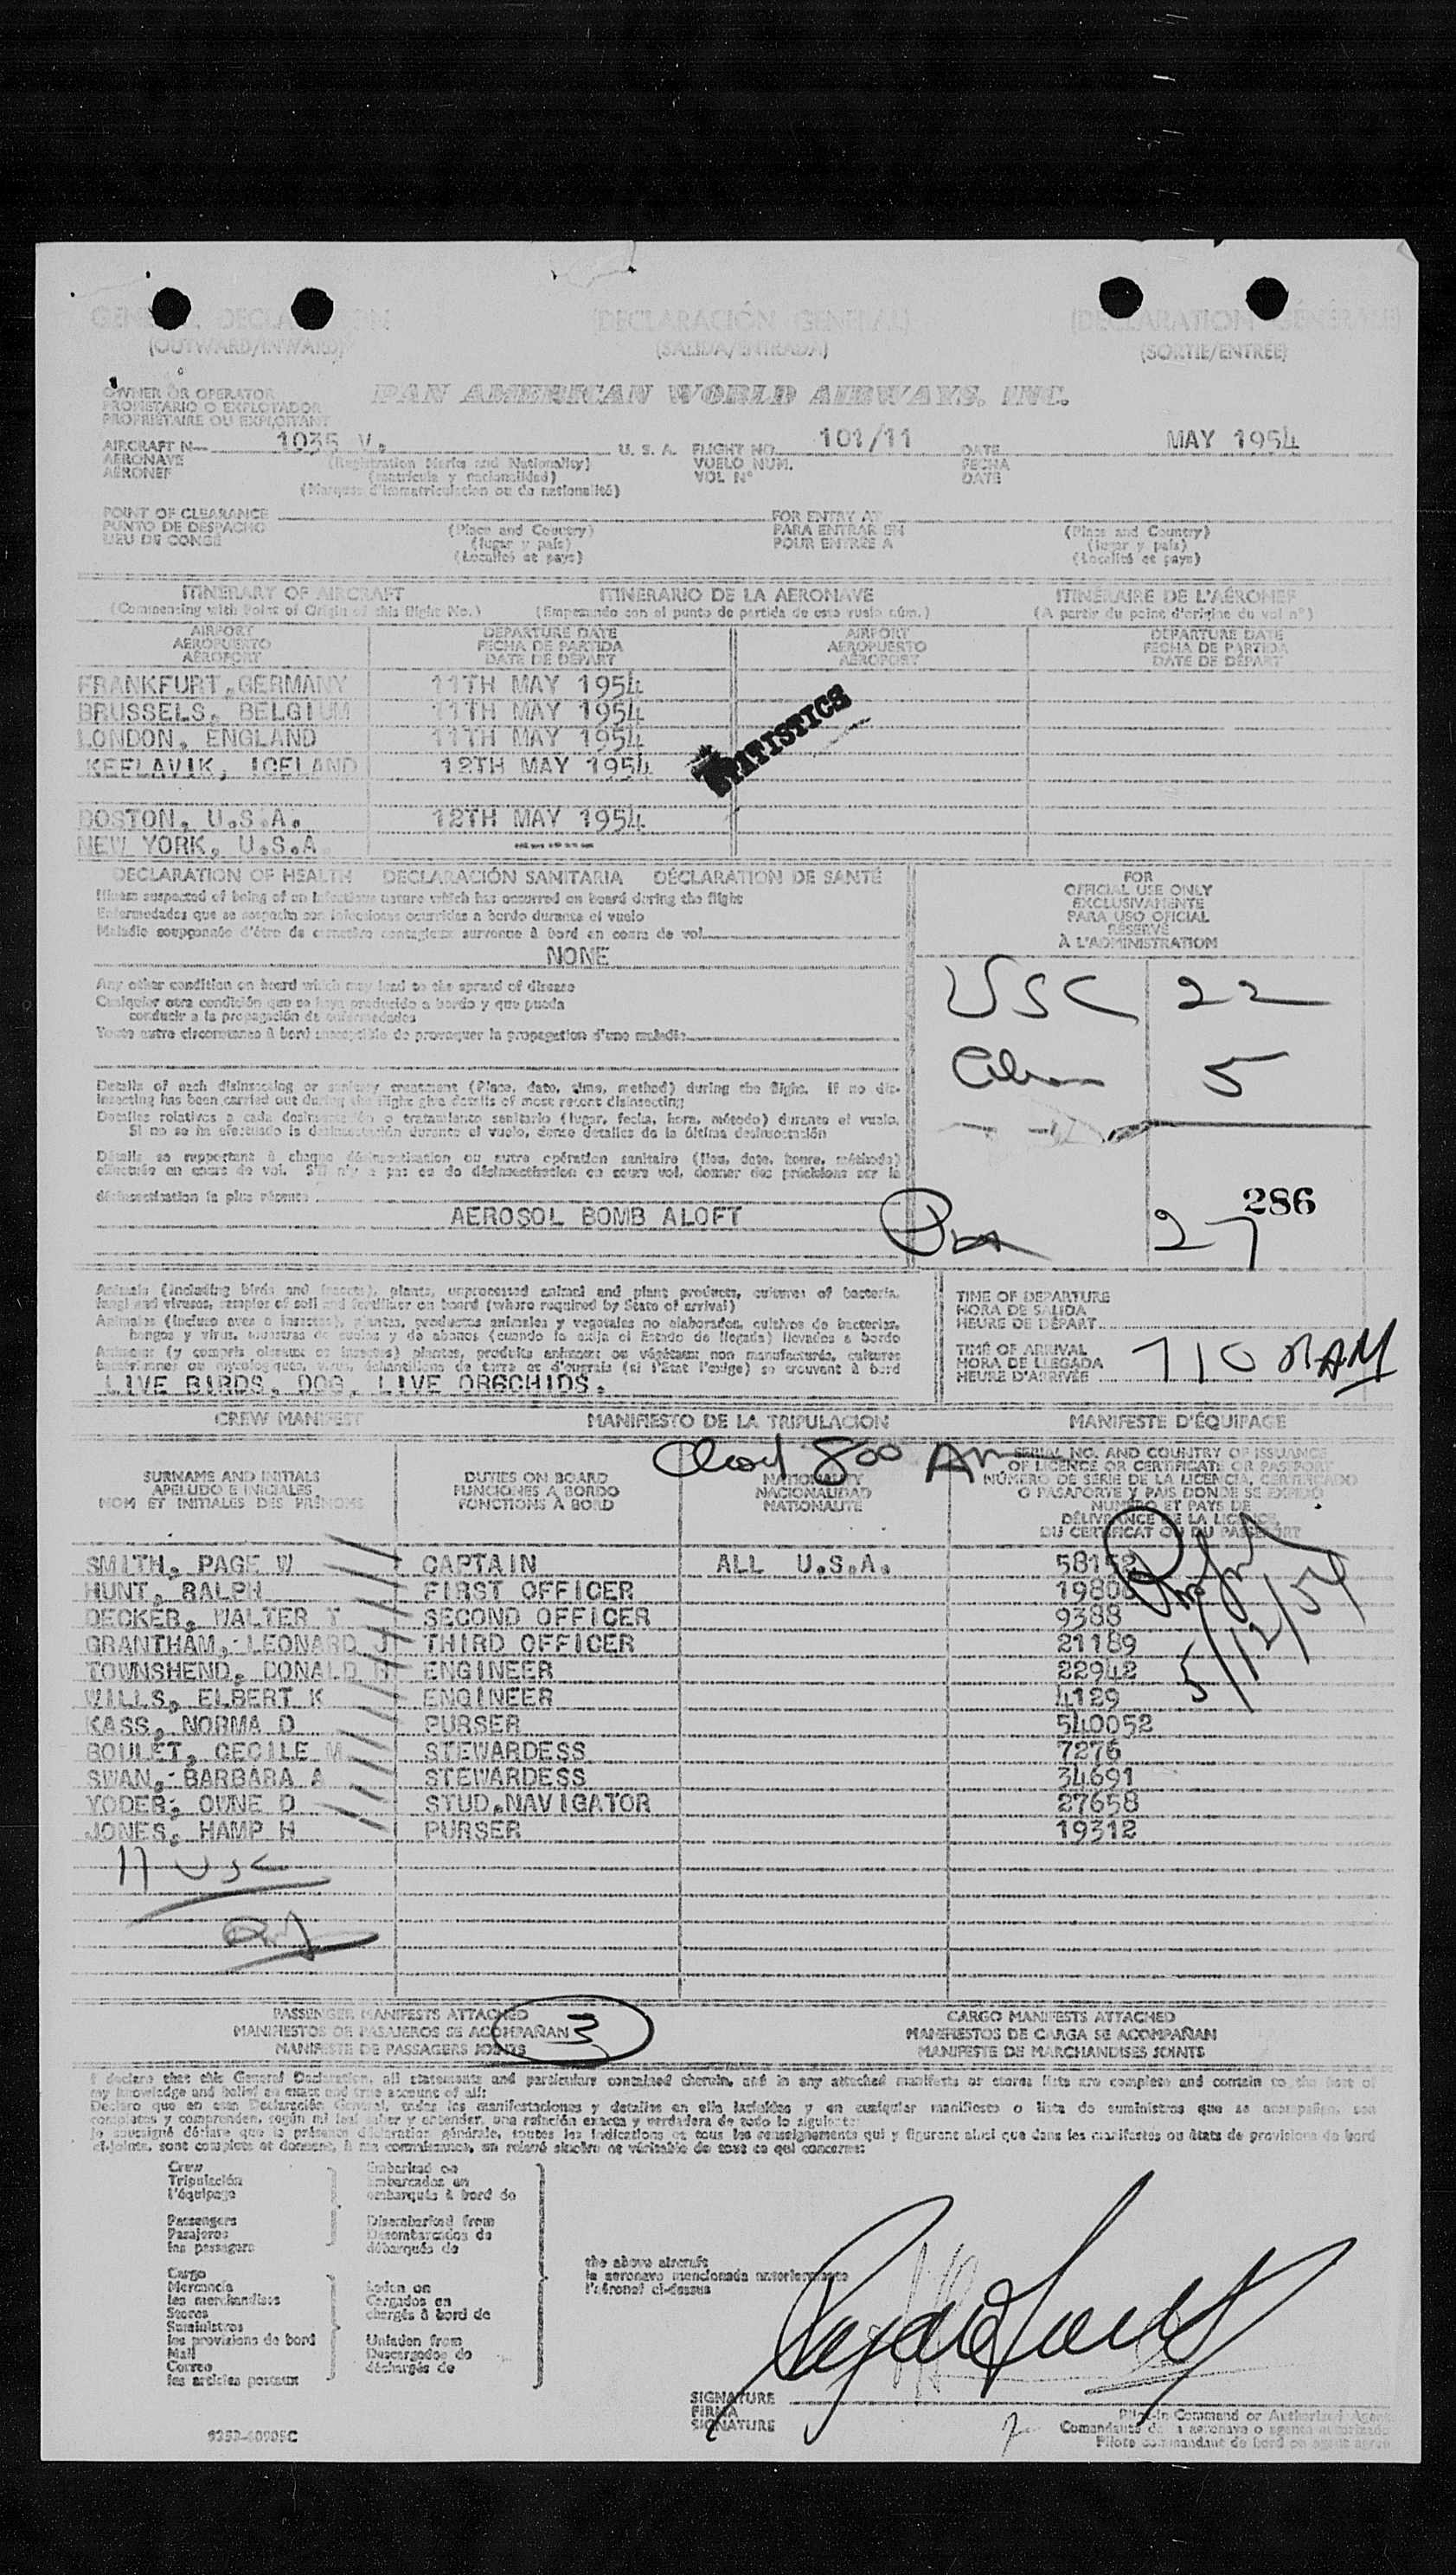 GENERAL DECLARATION (DECLARACIÓN GENERAL) (DECLARATION GÉNÉRALE)
(OUTWARD/INWARD) (SALIDA/ENTRADA) (SORTIE/ENTREE)
OWNER OR OPERATOR PAN AMERICAN WORLD AIRWAYS, INC.
PROPIETARIO O EXPLOTADOR
PROPRIÉTAIRE OU EXPLOITANT
AIRCRAFT N— 1035 V. U. S. A. FLIGHT NO. 101/11 DATE MAY 1954
AERONAVE (Registration Marks and Nationality) VUELO NUM. FECHA
AÉRONEF (matrícula y nacionalidad) VOL N° DATE
(Marques d'immatriculation ou de nationalité)
POINT OF CLEARANCE FOR ENTRY AT
PUNTO DE DESPACHO (Place and Country) PARA ENTRAR EN (Place and Country)
LIEU DE CONGÉ (lugar y país) POUR ENTRÉE A (lugar y país)
(Localité et pays) (Localité et pays)
ITINERARY OF AIRCRAFT ITINERARIO DE LA AERONAVE ITINÉRAIRE DE L'AÉRONEF
(Commencing with Point of Origin of this flight No.) (Empezando con el punto de partida de este vuelo núm.) (A partir du point d'origine du vol n°)
AIRPORT DEPARTURE DATE AIRPORT DEPARTURE DATE
AEROPUERTO FECHA DE PARTIDA AEROPUERTO FECHA DE PARTIDA
AÉROPORT DATE DE DÉPART AÉROPORT DATE DE DÉPART
FRANKFURT, GERMANY 11TH MAY 1954
BRUSSELS, BELGIUM 11TH MAY 1954
LONDON, ENGLAND 11TH MAY 1954
KEFLAVIK, ICELAND 12TH MAY 1954
STATISTICS
BOSTON, U.S.A. 12TH MAY 1954
NEW YORK, U.S.A. -----
DECLARATION OF HEALTH DECLARACIÓN SANITARIA DÉCLARATION DE SANTÉ
Illness suspected of being of an infectious nature which has occurred on board during the flight
Enfermedades que se sospecha son infecciosas ocurridas a bordo durante el vuelo
Maladie soupçonnée d'être de caractère contagieux survenue à bord en cours de vol
NONE
Any other condition on board which may lead to the spread of disease
Cualquier otra condición que se haya producido a bordo y que pueda
conducir a la propagación de enfermedades
Toute autre circonstance à bord susceptible de provoquer la propagation d'une maladie
Details of each disinsecting or sanitary treatment (Place, date, time, method) during the flight. If no dis-
insecting has been carried out during the flight give details of most recent disinsecting
Detalles relativos a cada desinsectación o tratamiento sanitario (lugar, fecha, hora, método) durante el vuelo.
Si no se ha efectuado la desinsectación durante el vuelo, dense detalles de la última desinsectación
Détails se rapportant à chaque désinsectisation ou autre opération sanitaire (lieu, date, heure, méthode)
effectuée en cours de vol. S'il n'y a pas eu de désinsectisation en cours vol, donner des précisions sur la
désinsectisation la plus récente
AEROSOL BOMB ALOFT
FOR
OFFICIAL USE ONLY
EXCLUSIVAMENTE
PARA USO OFICIAL
RÉSERVÉ
À L'ADMINISTRATION
USC 22
Alien 5
286
27
Animals (including birds and insects), plants, unprocessed animal and plant products, cultures of bacteria,
fungi and viruses, samples of soil and fertilizer on board (where required by State of arrival)
Animales (incluso aves e insectos), plantas, productos animales y vegetales no elaborados, cultivos de bacterias,
hongos y virus, muestras de suelos y de abonos (cuando lo exija el Estado de llegada) llevados a bordo
Animaux (y compris oiseaux et insectes) plantes, produits animaux ou végétaux non manufacturés, cultures
bactériennes ou mycologiques, virus, échantillons de terre et d'engrais (si l'État l'exige) se trouvant à bord
LIVE BIRDS, DOG, LIVE ORGCHIDS.
TIME OF DEPARTURE
HORA DE SALIDA
HEURE DE DÉPART
TIME OF ARRIVAL
HORA DE LLEGADA
HEURE D'ARRIVÉE 710 AM
CREW MANIFEST MANIFIESTO DE LA TRIPULACION MANIFESTE D'ÉQUIPAGE
800 AM
SURNAME AND INITIALS
APELLIDO E INICIALES
NOM ET INITIALES DES PRÉNOMS
DUTIES ON BOARD
FUNCIONES A BORDO
FONCTIONS À BORD
NATIONALITY
NACIONALIDAD
NATIONALITÉ
SERIAL NO. AND COUNTRY OF ISSUANCE
OF LICENCE OR CERTIFICATE OR PASSPORT
NÚMERO DE SERIE DE LA LICENCIA, CERTIFICADO
O PASAPORTE Y PAIS DONDE SE EXPIDIÓ
NUMÉRO ET PAYS DE
DÉLIVRANCE DE LA LICENCE,
DU CERTIFICAT OU DU PASSEPORT
SMITH, PAGE W CAPTAIN ALL U.S.A. 58152
HUNT, RALPH FIRST OFFICER 19806
DECKER, WALTER T SECOND OFFICER 9388
GRANTHAM, LEONARD J THIRD OFFICER 21189
TOWNSHEND, DONALD H ENGINEER 22942
WILLS, ELBERT K ENGINEER 4129
KASS, NORMA D PURSER 540052
BOULET, CECILE M STEWARDESS 7276
SWAN, BARBARA A STEWARDESS 34691
YODER, OUNE D STUD.NAVIGATOR 27658
JONES, HAMP H PURSER 19312
5/12/54
11 USC
PASSENGER MANIFESTS ATTACHED CARGO MANIFESTS ATTACHED
MANIFIESTOS DE PASAJEROS SE ACOMPAÑAN 3 MANIFIESTOS DE CARGA SE ACOMPAÑAN
MANIFESTE DE PASSAGERS JOINTS MANIFESTE DE MARCHANDISES JOINTS
I declare that this General Declaration, all statements and particulars contained therein, and in any attached manifests or stores lists are complete and contain to the best of
my knowledge and belief an exact and true account of all:
Declaro que en esta Declaración General, todas las manifestaciones y detalles en ella incluídos y en cualquier manifiesto o lista de suministros que se acompañan, son
completos y comprenden, según mi leal saber y entender, una relación exacta y verdadera de todo lo siguiente:
Je soussigné déclare que la présente déclaration générale, toutes les indications et tous les renseignements qui y figurent ainsi que dans les manifestes ou états de provisions de bord
ci-joints, sont complets et donnent, à ma connaissance, un relevé sincère et véritable de tout ce qui concerne:
Crew Embarked on
Tripulación Embarcados en
l'équipage embarqués à bord de
Passengers Disembarked from
Pasajeros Desembarcados de
les passagers débarqués de
the above aircraft
la aeronave mencionada anteriormente
l'aéronef ci-dessus
Cargo
Mercancía Laden on
les merchandises Cargados en
Stores chargés à bord de
Suministros
les provisions de bord Unladen from
Mail Descargados de
Correo déchargés de
les articles postaux
SIGNATURE
FIRMA
SIGNATURE
Pilot-in Command or Authorized Agent
Comandante de la aeronave o agente autorizado
Pilote commandant de bord ou agent agréé